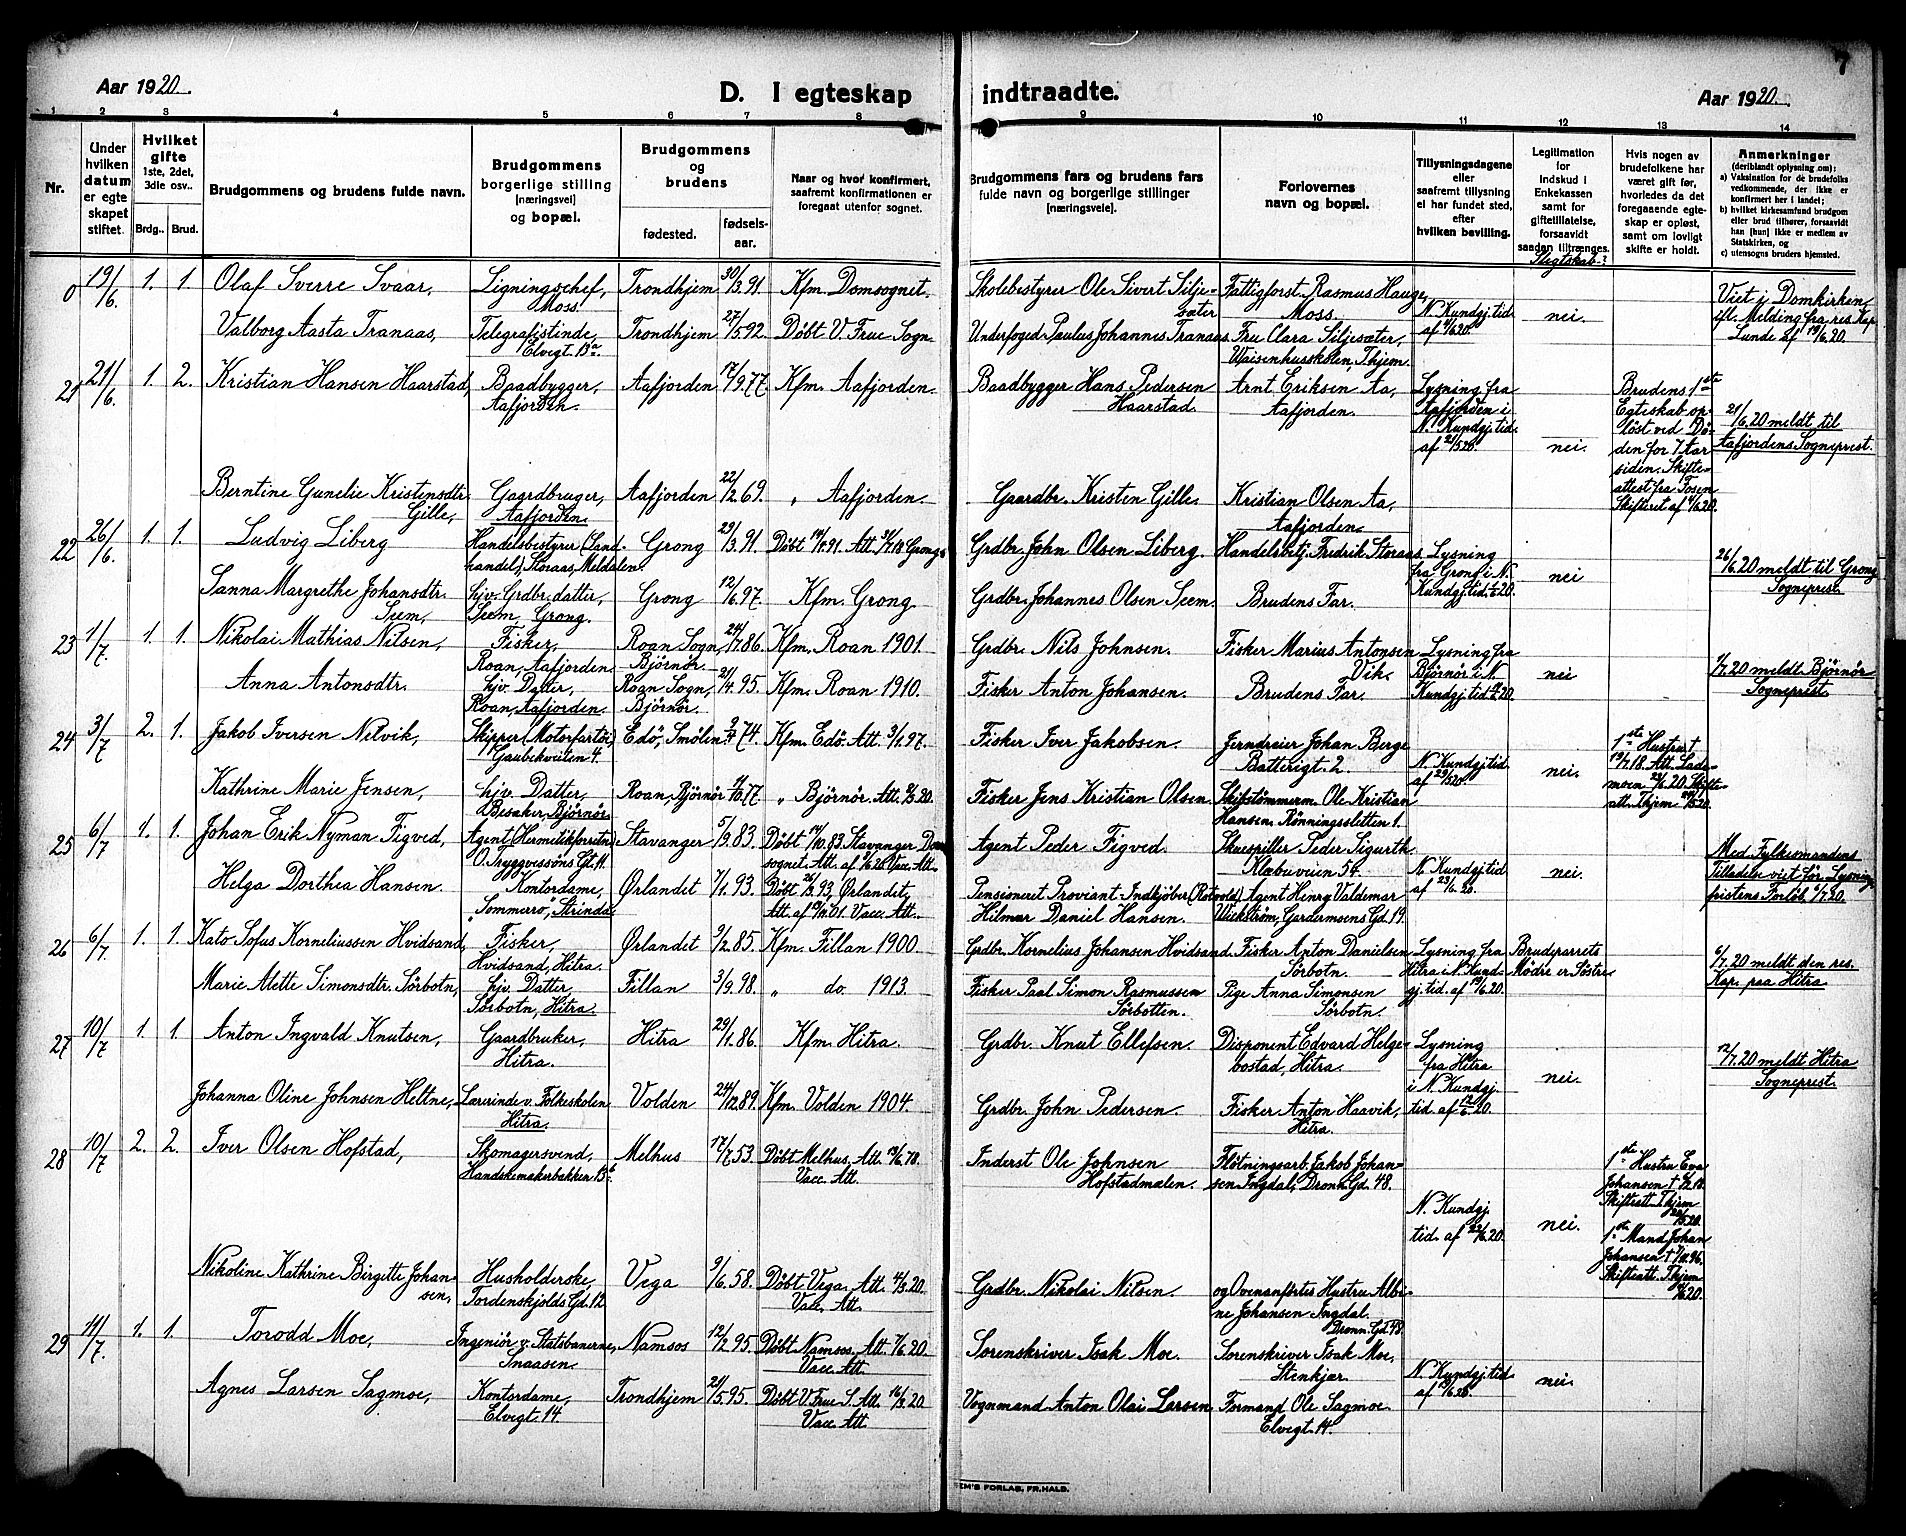 7
Aar 1920.
D. I egteskap indtraadte.
Aar 1920.
1 2 3 4 5 6 7 8 9 10 11 12 13 14
Nr.
Under hvilken datum er egteskapet stiftet.
Hvilket gifte 1ste, 2det, 3die osv..
Brdg.. Brud.
Brudgommens og brudens fulde navn.
Brudgommens borgerlige stilling [næringsvei] og bopæl.
Brudgommens og brudens
fødested.
fødselsaar.
Naar og hvor konfirmert, saafremt konfirmationen er foregaat utenfor sognet.
Brudgommens fars og brudens fars fulde navn og borgerlige stillinger [næringsveie].
Forlovernes navn og bopæl.
Tillysningsdagene eller saafremt tillysning ei har fundet sted, efter hvilken bevilling.
Legitimation for Indskud i Enkekassen samt for giftetillatelse, forsaavidt saadan tiltrænges.
Slegtskab?
Hvis nogen av brudefolkene har været gift før, hvorledes da det foregaaende egteskap er opløst, samt om lovligt skifte er holdt.
Anmerkninger (deriblandt oplysning om): a) Vaksination for de brudefolks vedkommende, der ikke er konfirmert her i landet; b) hvilket kirkesamfund brudgom eller brud tilhører, forsaavidt han [hun] ikke er medlem av Statskirken, og c) utensogns bruders hjemsted.
0 19/6. 1. 1. Olaf Sverre Svaar, Ligningschef, Moss. Trondhjem 30/3.91 Kfm. Domsognet. Skolebestyrer Ole Sivert Siljesæter Fattigforst. Rasmus Hauge, Moss. N. Kundgj.tid. af 4/6 20. nei. Viet i Domkirken, ifl. Melding fra res. Kap. Lunde af 19/6.20.
Valborg Aasta Tranaas, Telegrafistinde, Elvegt. 13a Trondhjem 27/5 92. Døbt V. Frue Sogn. Underfoged Paulus Johannes Tranaas Fru Clara Siljesæter, Waisenhusskolen, Thjem.
21 21/6. 1. 2. Kristian Hansen Haarstad, Baadbygger, Aafjorden. Aafjorden 17/9.77. Kfm. Aafjorden. Baadbygger Hans Pedersen Haarstad. Arnt Eriksen Aa, Aafjorden. Lysning fra Aafjorden i N. Kundgj.tid. af 21/5 20. nei. Brudens 1ste Egteskab opløst ved Døden for 7 Aar siden. Skifteattest fra Fosen Skifteret af 14/6.20. 21/6.20 meldt til Aafjordens Sogneprest.
Berntine Gunelie Kristensdtr. Gille, Gaardbruger, Aafjorden. Aafjorden 22/2 69. " Aafjorden. Gaardbr. Kristen Gille. Kristian Olsen Aa, Aafjorden.
22 26/6. 1. 1. Ludvig Liberg Handelsbestyrer (Landhandel), Storaas, Meldalen. Grong 29/3.91 Døbt 19/4.91. Att. Grong. Grdbr. John Olsen Liberg. Handelsbetj. Fredrik Storaas Lysning fra Grong i N. Kundgj.tid. 20. nei 26/6.20 meldt til Grong Sogneprest.
Sanna Margrethe Johansdtr. Seem, hjv. Grdbr. datter, Seem, Grong. Grong 12/6.97. Kfm. Grong. Grdbr. Johannes Olsen Seem. Brudens Far.
23 1/7. 1. 1. Nikolai Mathias Nilsen, Fisker, Roan, Aafjorden Roan Sogn, Bjørnør. 24/7.86. Kfm. Roan 1901. Grdbr. Nils Johnsen. Fisker Marius Antonsen Vik. Lysning fra Bjørnør i N. Kundgj.tid 20. nei 1/7.20 meldt Bjørnør Sogneprest.
Anna Antonsdtr. hjv. Datter, Roan, Aafjorden. Roan Sogn, Bjørnør. 21/4.95. Kfm. Roan 1910. Fisker Anton Johansen. Brudens Far.
24 3/7 2. 1. Jakob Iversen Nelvik, Skipper (Motorfartøi) Gaubekveiten 4. Edø, Smølen 74. Kfm. Edø. Att. 3/1.97. Fisker Iver Jakobsen. Jerndreier Johan Berge Batterigt. 2. N. Kundgj.tid. af 29/5 20 nei. 1ste Hustru † 19/7.18. Att. Lademoen 22/6.20. Skifteatt. Thjem 20.
Kathrine Marie Jensen, hjv. Datter, Besaker, Bjørnør Roan, Bjørnør 77. " Bjørnør. Att. 20. Fisker Jens Kristian Olsen Skibstømmerm. Ole Kristian Hansen. Rønningsletten 1.
25 6/7 1. 1. Johan Erik Nyman Figved, Agent (Hermetikforretn.) O. Tryggvessøns Gt. 11. Stavanger 5/9.83. Døbt 14/10.83. Stavanger Domsognet. Att. af 20. Vacc. Att. Agent Peder Figved. Skuespiller Peder Sigurth Klæbuveien 54. N. Kundgj.tid af 23/6.20. nei. Med Fylkesmandens Tilladelse viet før Lysningsfristens Forløb. 6/7.20.
Helga Dorthea Hansen. Kontordame, "Sommerro", Strinda Ørlandet 7/1.93. Døbt 26/3 93, Ørlandet, Att. af 01. Vacc. Att. Pensioneret Proviant-Indkjøber (Rotvold) Hilmar Daniel Hansen. Agent Henry Valdemar Wickstrøm, Gardermoens Gd. 19.
26 6/7. 1. 1. Kato Sofus Korneliussen Hvidsand, Fisker, Hvidsand, Hitra. Ørlandet 9/2.85. Kfm. Fillan 1900 Grdbr. Kornelius Johansen Hvidsand. Fisker Anton Danielsen Sørbotn. Lysning fra Hitra i N. Kundgj.tid. af 19/6.20. Brudeparrets Mødre er Søstre 6/7.20 meldt den res. Kap. paa Hitra.
Marie Alette Simonsdtr. Sørbotn, hjv. Datter, Sørbotn, Hitra. Fillan 3/9.98. " do. 1913. Fisker Paal Simon Rasmussen Sørbotten. Pige Anna Simonsen Sørbotn.
27 10/7 1. 1. Anton Ingvald Knutsen, Gaardbruker, Hitra. Hitra 29/1.86. Kfm. Hitra. Grdbr. Knut Ellefsen. Disponent Edvard Helgebostad, Hitra. Lysning fra Hitra i N. Kundgj.tid. af 12/6.20. nei. 12/7.20 meldt Hitra Sogneprest.
Johanna Oline Johnsen Heltne, Lærerinde v. Folkeskolen Hitra. Volden 24/12 89. Kfm. Volden 1904. Grdbr. John Pedersen. Fisker Anton Haavik, Hitra.
28 10/7 2. 2. Iver Olsen Hofstad, Skomagersvend, Handskemakerbakken 13b. Melhus 17/7 53. Døbt Melhus, Att. 19/6.70. Vacc. Att. Inderst Ole Johnsen Hofstadmalen. Fløtningsarb. Jakob Johansen Ingdal, Dronn. Gd. 48. N. Kundgj.tid. af 22/6.20. nei. 1ste Hustru Eva Johansen † 18. Skifteatt. Thjem 20. 1ste Mand Johan Johansen † 96. Skifteatt. Thjem 20.
Nikoline Kathrine Birgitte Johansen, Husholderske, Tordenskjolds Gd. 12 Vega 9/6.58. Døbt Vega. Att. 4/3.20 Vacc. Att. Grdbr. Nikolai Nilsen og Ovenanførtes Hustru Albine Johansen Ingdal. Dronn. Gd 48.
29 11/7. 1. 1. Torodd Moe, Ingeniør v. Statsbanerne, Snaasen. Namsos 12/2 95. Døbt Namsos, Att. 7/6.20 Vacc. Att. Sorenskriver Isak Moe. Sorenskriver Isak Moe, Stenkjær. N. Kundgj.tid. af 19/6 20. nei.
Agnes Larsen Sagmoe, Kontordame, Elvegt. 14 Trondhjem 21/5 95. Døbt V. Frue S. Att. 16/3.20 Vacc. Att. Vognmand Anton Olai Larsen Formand Ole Sagmoe. Elvegt. 14.
EM'S FORLAG, FR.HALD.